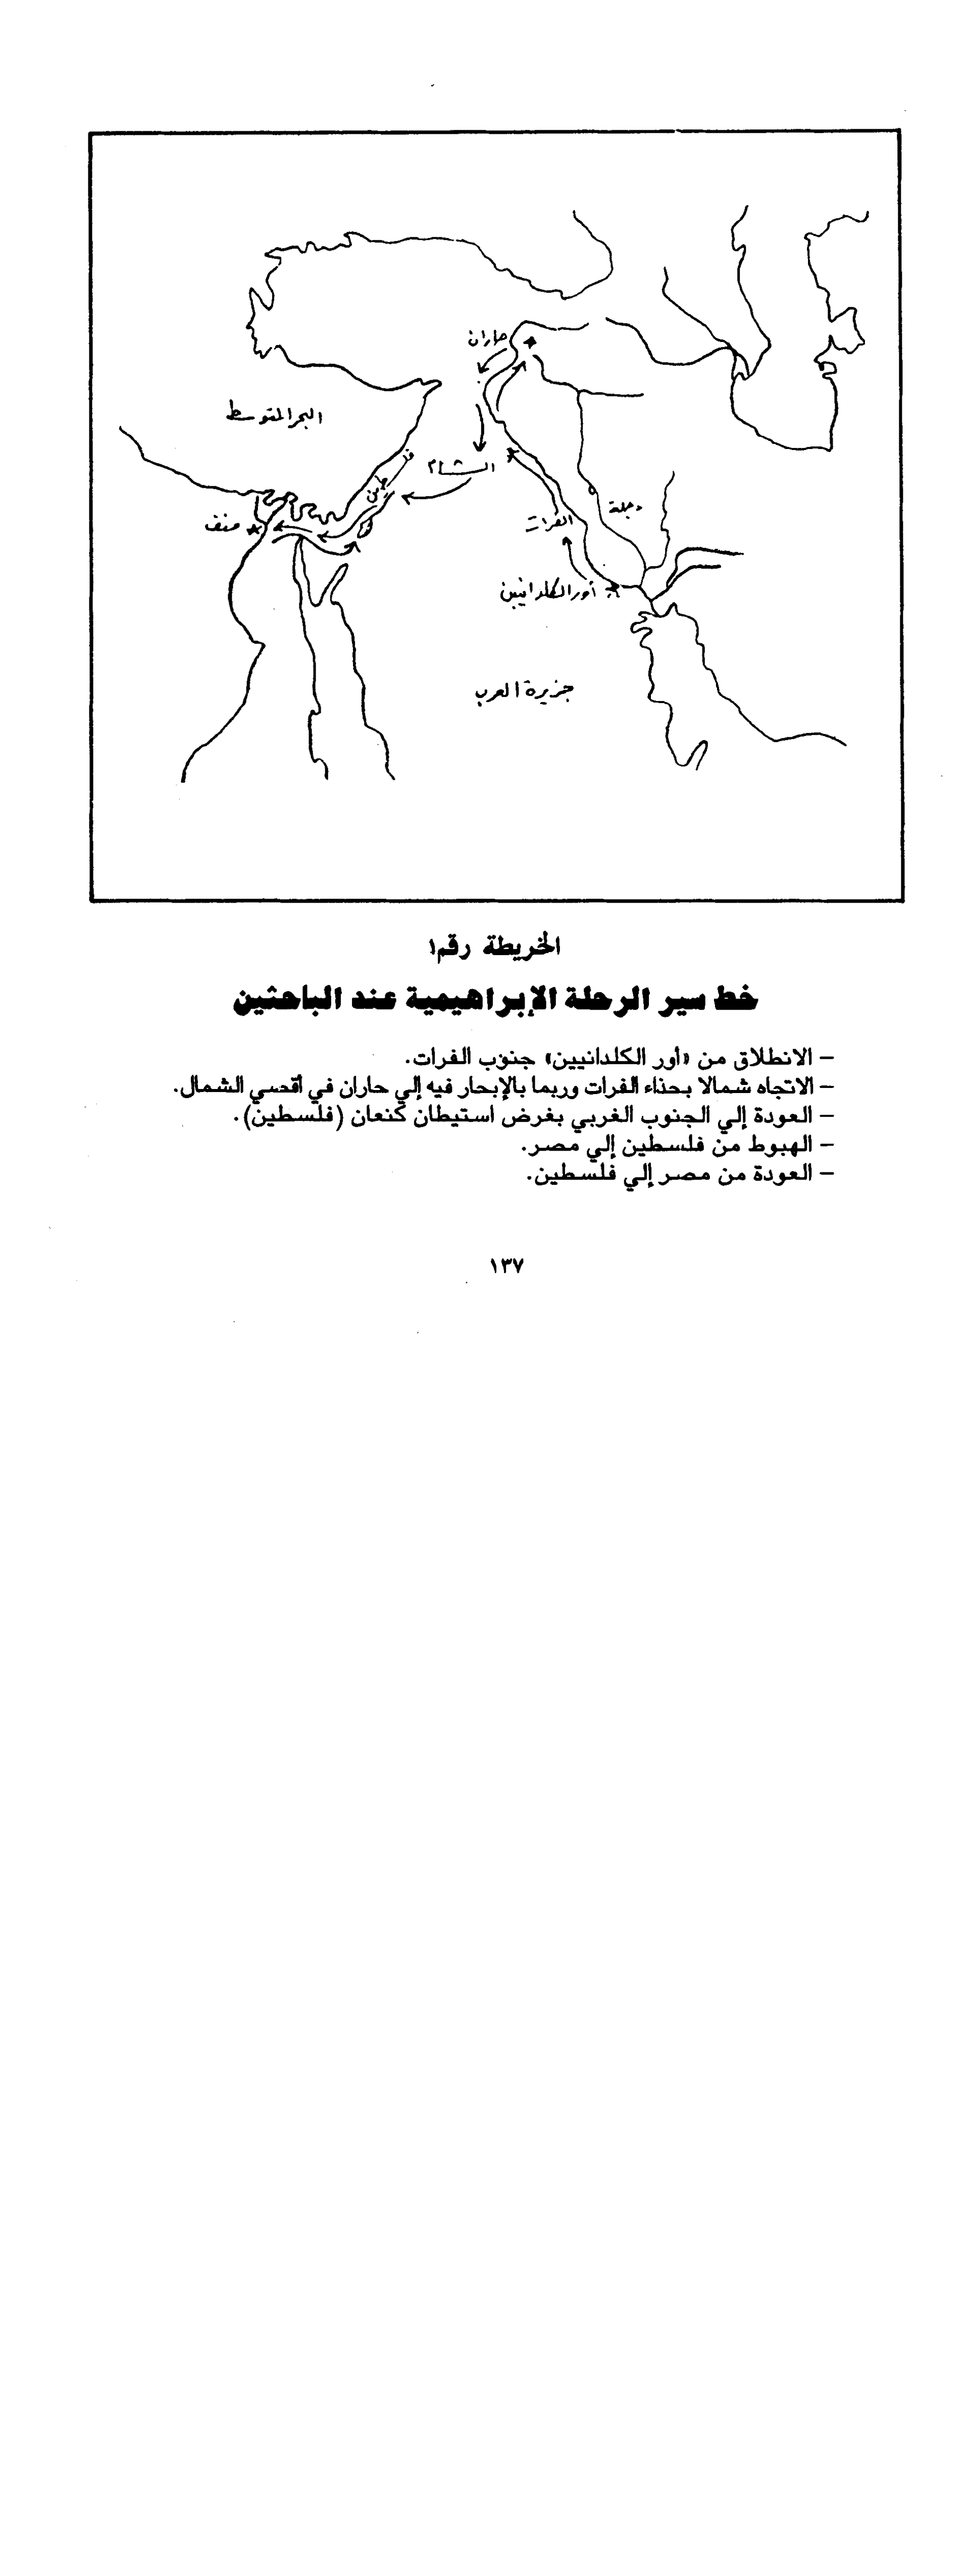 حاران
البحر المتوسط
الشام
فلسطين
دجلة
الفرات
منف
أور الكلدانيين
جزيرة العرب
الخريطة رقم١
خط سير الرحلة الإبراهيمية عند الباحثين
– الانطلاق من «أور الكلدانيين» جنوب الفرات.
– الاتجاه شمالا بحذاء الفرات وربما بالإبحار فيه إلي حاران في أقصي الشمال.
– العودة إلي الجنوب الغربي بغرض استيطان كنعان (فلسطين).
– الهبوط من فلسطين إلي مصر.
– العودة من مصر إلي فلسطين.
١٣٧